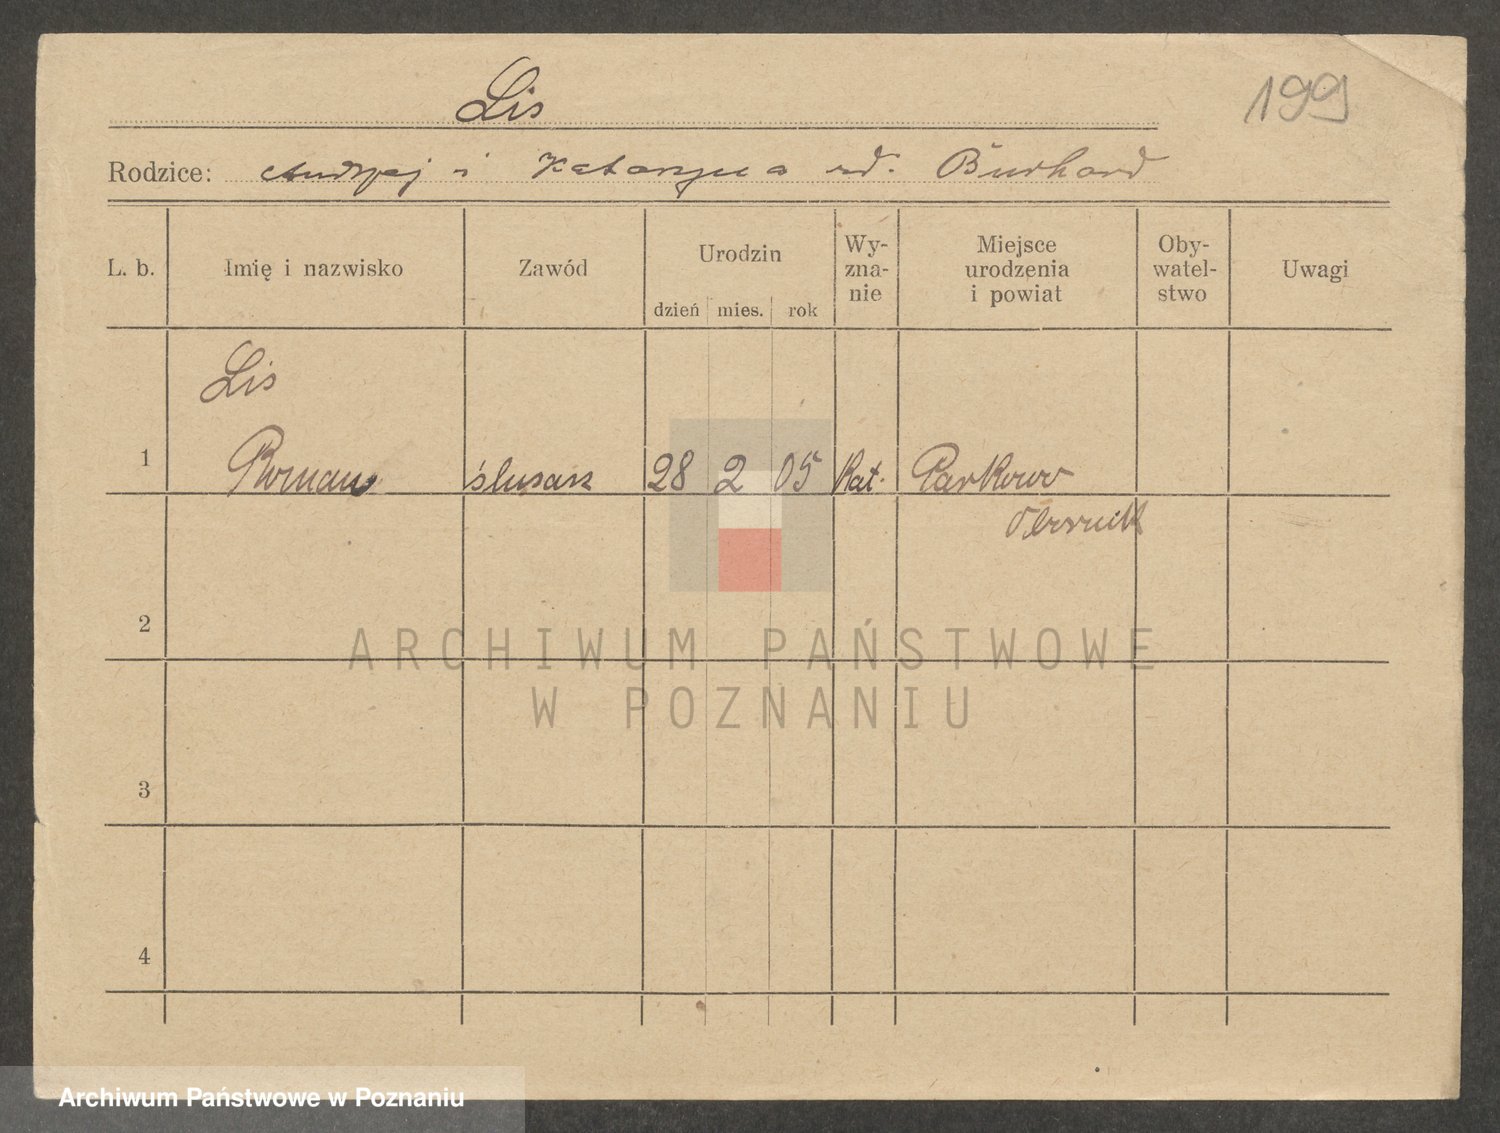 Lis
199
Rodzice: Andrzej i Katarzyna rd. Burhard
L. b. Imię i nazwisko Zawód Urodzin Wy- Miejsce Oby- Uwagi
zna- urodzenia watel-
nie i powiat stwo
dzień mies. rok
Lis
1 Roman ślusarz 28 2 05 Kat. Parkowo
2
ARCHIWUM PAŃSTWOWE
W POZNANIU
3
4
Archiwum Państwowe w Poznaniu